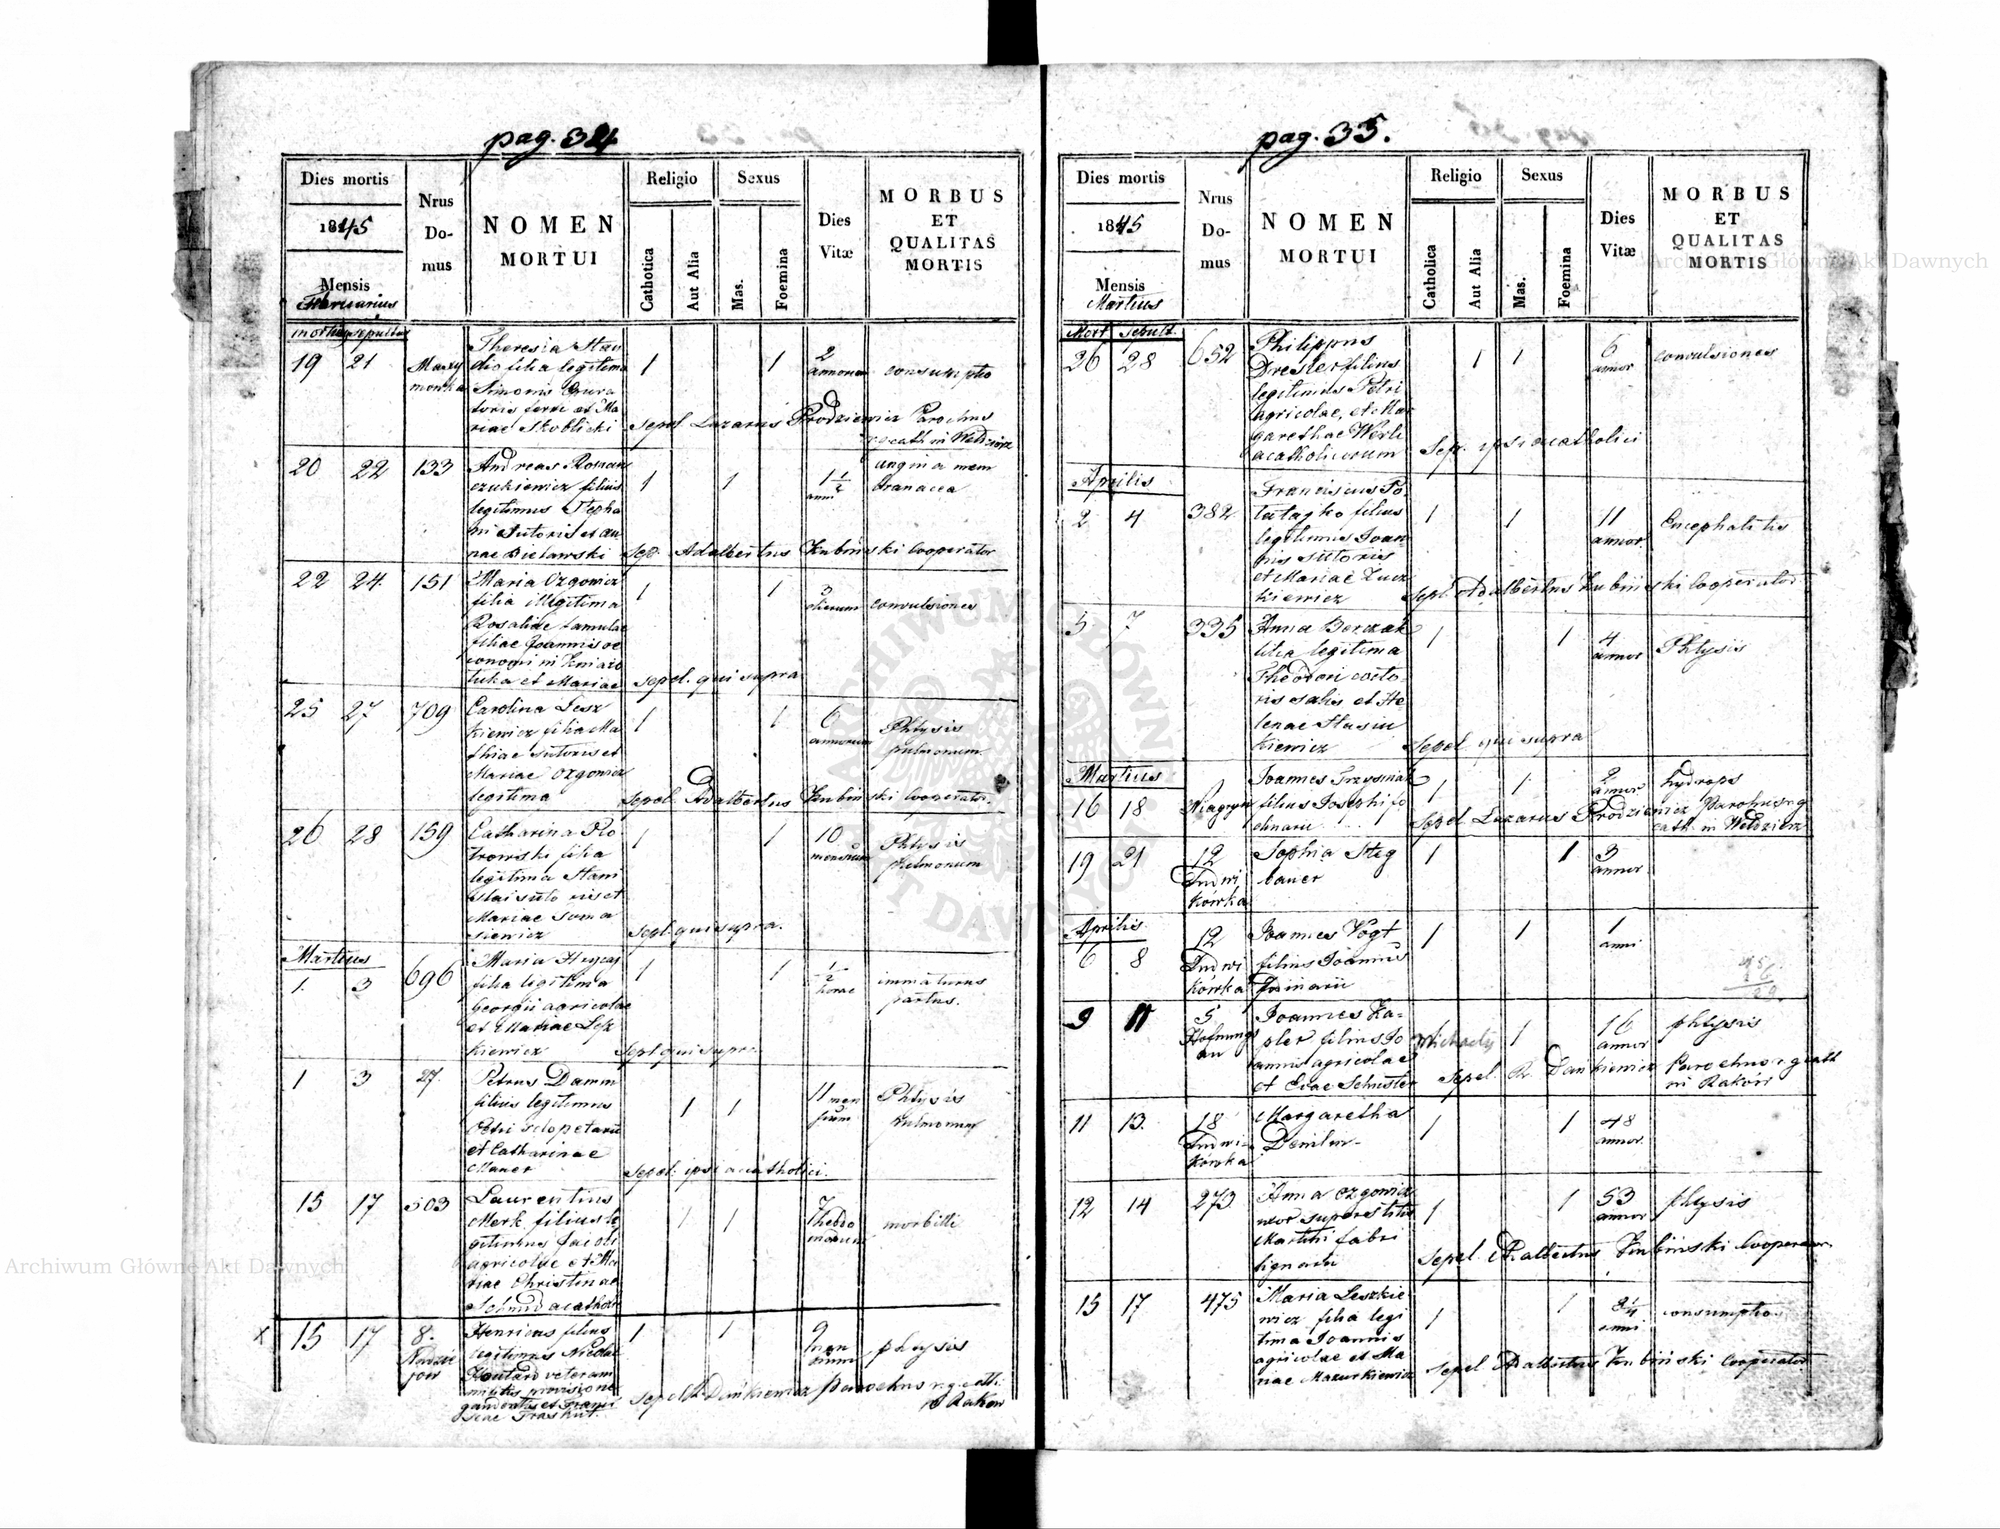 pag. 34
Dies mortis
1845
Mensis
Februarius
mortuus sepultus
Nrus
Do-
mus
NOMEN
MORTUI
Religio
Catholica
Aut Alia
Sexus
Mas.
Foemina
Dies
Vitæ
MORBUS
ET
QUALITAS
MORTIS
19 21
Theresia
dio filia legitima
Simonis
toris ferri et Ma
riae Skoblicki
1 1
2
annorum
consumptio
Sepel. Lazarus Prodziewicz Parochus
r g cath in Weldzirz
20 22 133
Andreas Roman
czukiewicz filius
legitimus Stepha
ni Sutoris et An
nae Bielawski
1 1
1 1/2
anni
angina mem
branacea
Sep. Adalbertus Zubinski Cooperator
22 24 151
Maria Ozgowicz
filia illegitima
Rosaliae famulae
filiae Joannis oe
conomi in Kniazo
luka et Mariae
1 1
3
dierum
convulsiones
sepel. qui supra
25 27 709
Carolina Lesz
kiewicz filia Ma
thiae sutoris et
Mariae Ozgowicz
legitima
1 1
6
annorum
Phtysis
pulmonum
Sepel. Adalbertus Zubinski Cooperator.
26 28 159
Catharina Pio
trowski filia
legitima Stani
slai suto ris et
Mariae Toma
siewicz
1 1
10
mensium
Phtysis
pulmonum
Sepel. qui supra.
Martius
1. 3 696
Maria
filia legitima
Georgii agricolae
et Mariae Lesz
kiewicz
1 1
1/2
horae
immaturus
partus.
Sepel qui supra
1 3 27.
Petrus Damm
filius legitimus
Petri sclopetarii
et Catharinae
Mauer
1 1
11 men
sium
Phtysis
pulmonum
Sepel. ipsi acatholici.
15 17 503
Laurentius
Merk filius le
gitimus Jacobi
agricolae et Ma
riae Christinae
Schmid acathol.
1 1
7
hebdo
madum
morbilli
x 15 17 8.
Nadzie
jow
Henricus filius
legitimus Nicolai
veterani
militis provisione
gaudentis et Franci
scae
1 1
9
men
sium
phtysis
Sepel R Dankiewicz Parochus r.g. cath.
Rakow
pag. 35.
Dies mortis
1845
Mensis
Martius
Mort Sepult.
Nrus
Do-
mus
NOMEN
MORTUI
Religio
Catholica
Aut Alia
Sexus
Mas.
Foemina
Dies
Vitæ
MORBUS
ET
QUALITAS
MORTIS
26 28 652
Philippus
Dresler filius
legitimus Petri
agricolae, et Mar
garethae Werle
acatholicorum
1 1
6
annor
convulsiones
Sep. ipsi acatholici
Aprilis
2 4 382
Franciscus
filius
legitimus Joan-
nis sutoris
et Mariae Lucz
kiewicz
1 1
11
annor.
Encephalitis
Sepel. Adalbertus Zubinski Cooperator
5 7 335
Anna Borczak
filia legitima
Theodori cocto-
ris salis et He-
lenae Stasiu
kiewicz
1 1
4
annor
Phtysis
Sepel qui supra
Martius
16 18
Joannes Trzysniak
filius Josephi fo
dinarii
1 1
2
annor
hydrops
Sepel Lazarus Prodziewicz Parochus r.g
cath. in Weldzirz
19 21 12
Ludwi
kówka
Sophia Steg
bauer
1 1
3
annor
Aprilis
6 8 12
Ludwi
kówka
Joannes Vogt
filius Joannis
fodinarii
1 1
1
anni
9 11 5
Hofnungs
au
Joannes Za-
pler filius Jo
annis agricolae
et Evae Schuster
Michaely
1
16
annor
phtysis
Sepel. R. Dankiewicz Parochus r. g cath
in Raków
11 13. 18
Ludwi-
kówka
Margaretha
1 1
48
annor.
12 14 273
Anna Ozgowicz
uxor superstitis
Martini fabri
lignarii
1 1
53
annor
phtysis
Sepel Adalbertus Zubinski Cooperator.
15 17 475
Maria Leszkie
wicz filia legi
tima Joannis
agricolae et Ma
riae Mazurkiewicz
1 1
2 1/4
anni
consumptio
Sepel Adalbertus Zubinski Cooperator
Archiwum Główne Akt Dawnych
Archiwum Główne Akt Dawnych
ARCHIWUM GŁÓWNE AKT DAWNYCH